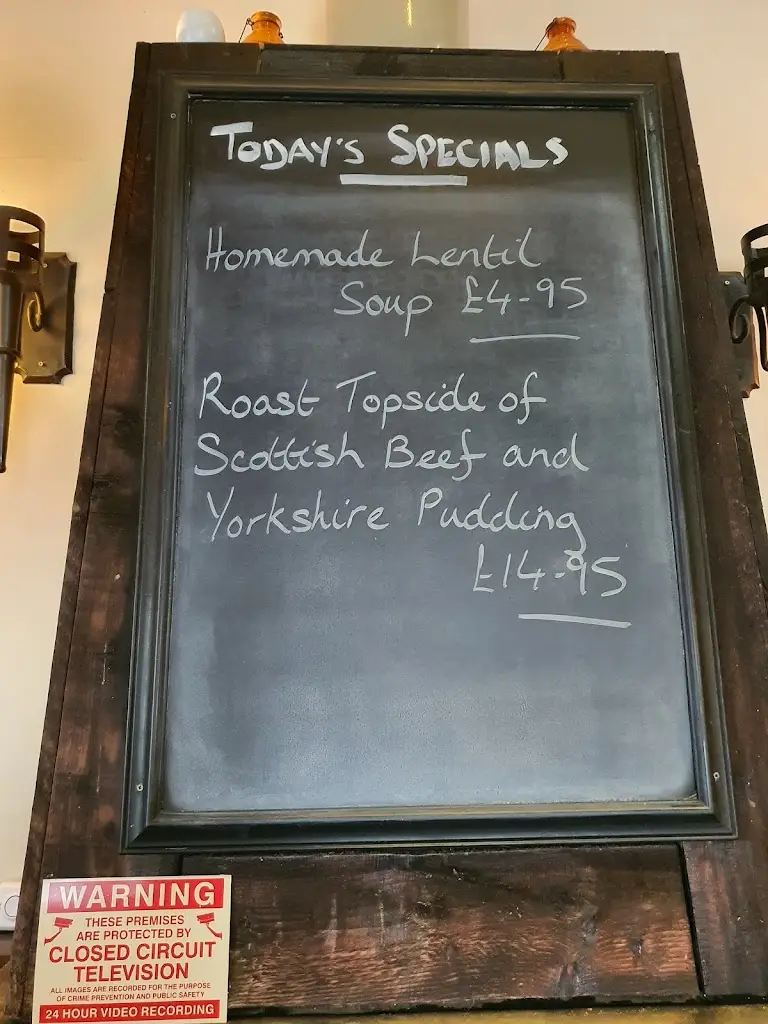 TODAY'S SPECIALS
Homemade Lentil
Soup £4-95
Roast Topside of
Scottish Beef and
Yorkshire Pudding
£14-95
WARNING
THESE PREMISES
ARE PROTECTED BY
CLOSED CIRCUIT
TELEVISION
ALL IMAGES ARE RECORDED FOR THE PURPOSE
OF CRIME PREVENTION AND PUBLIC SAFETY
24 HOUR VIDEO RECORDING